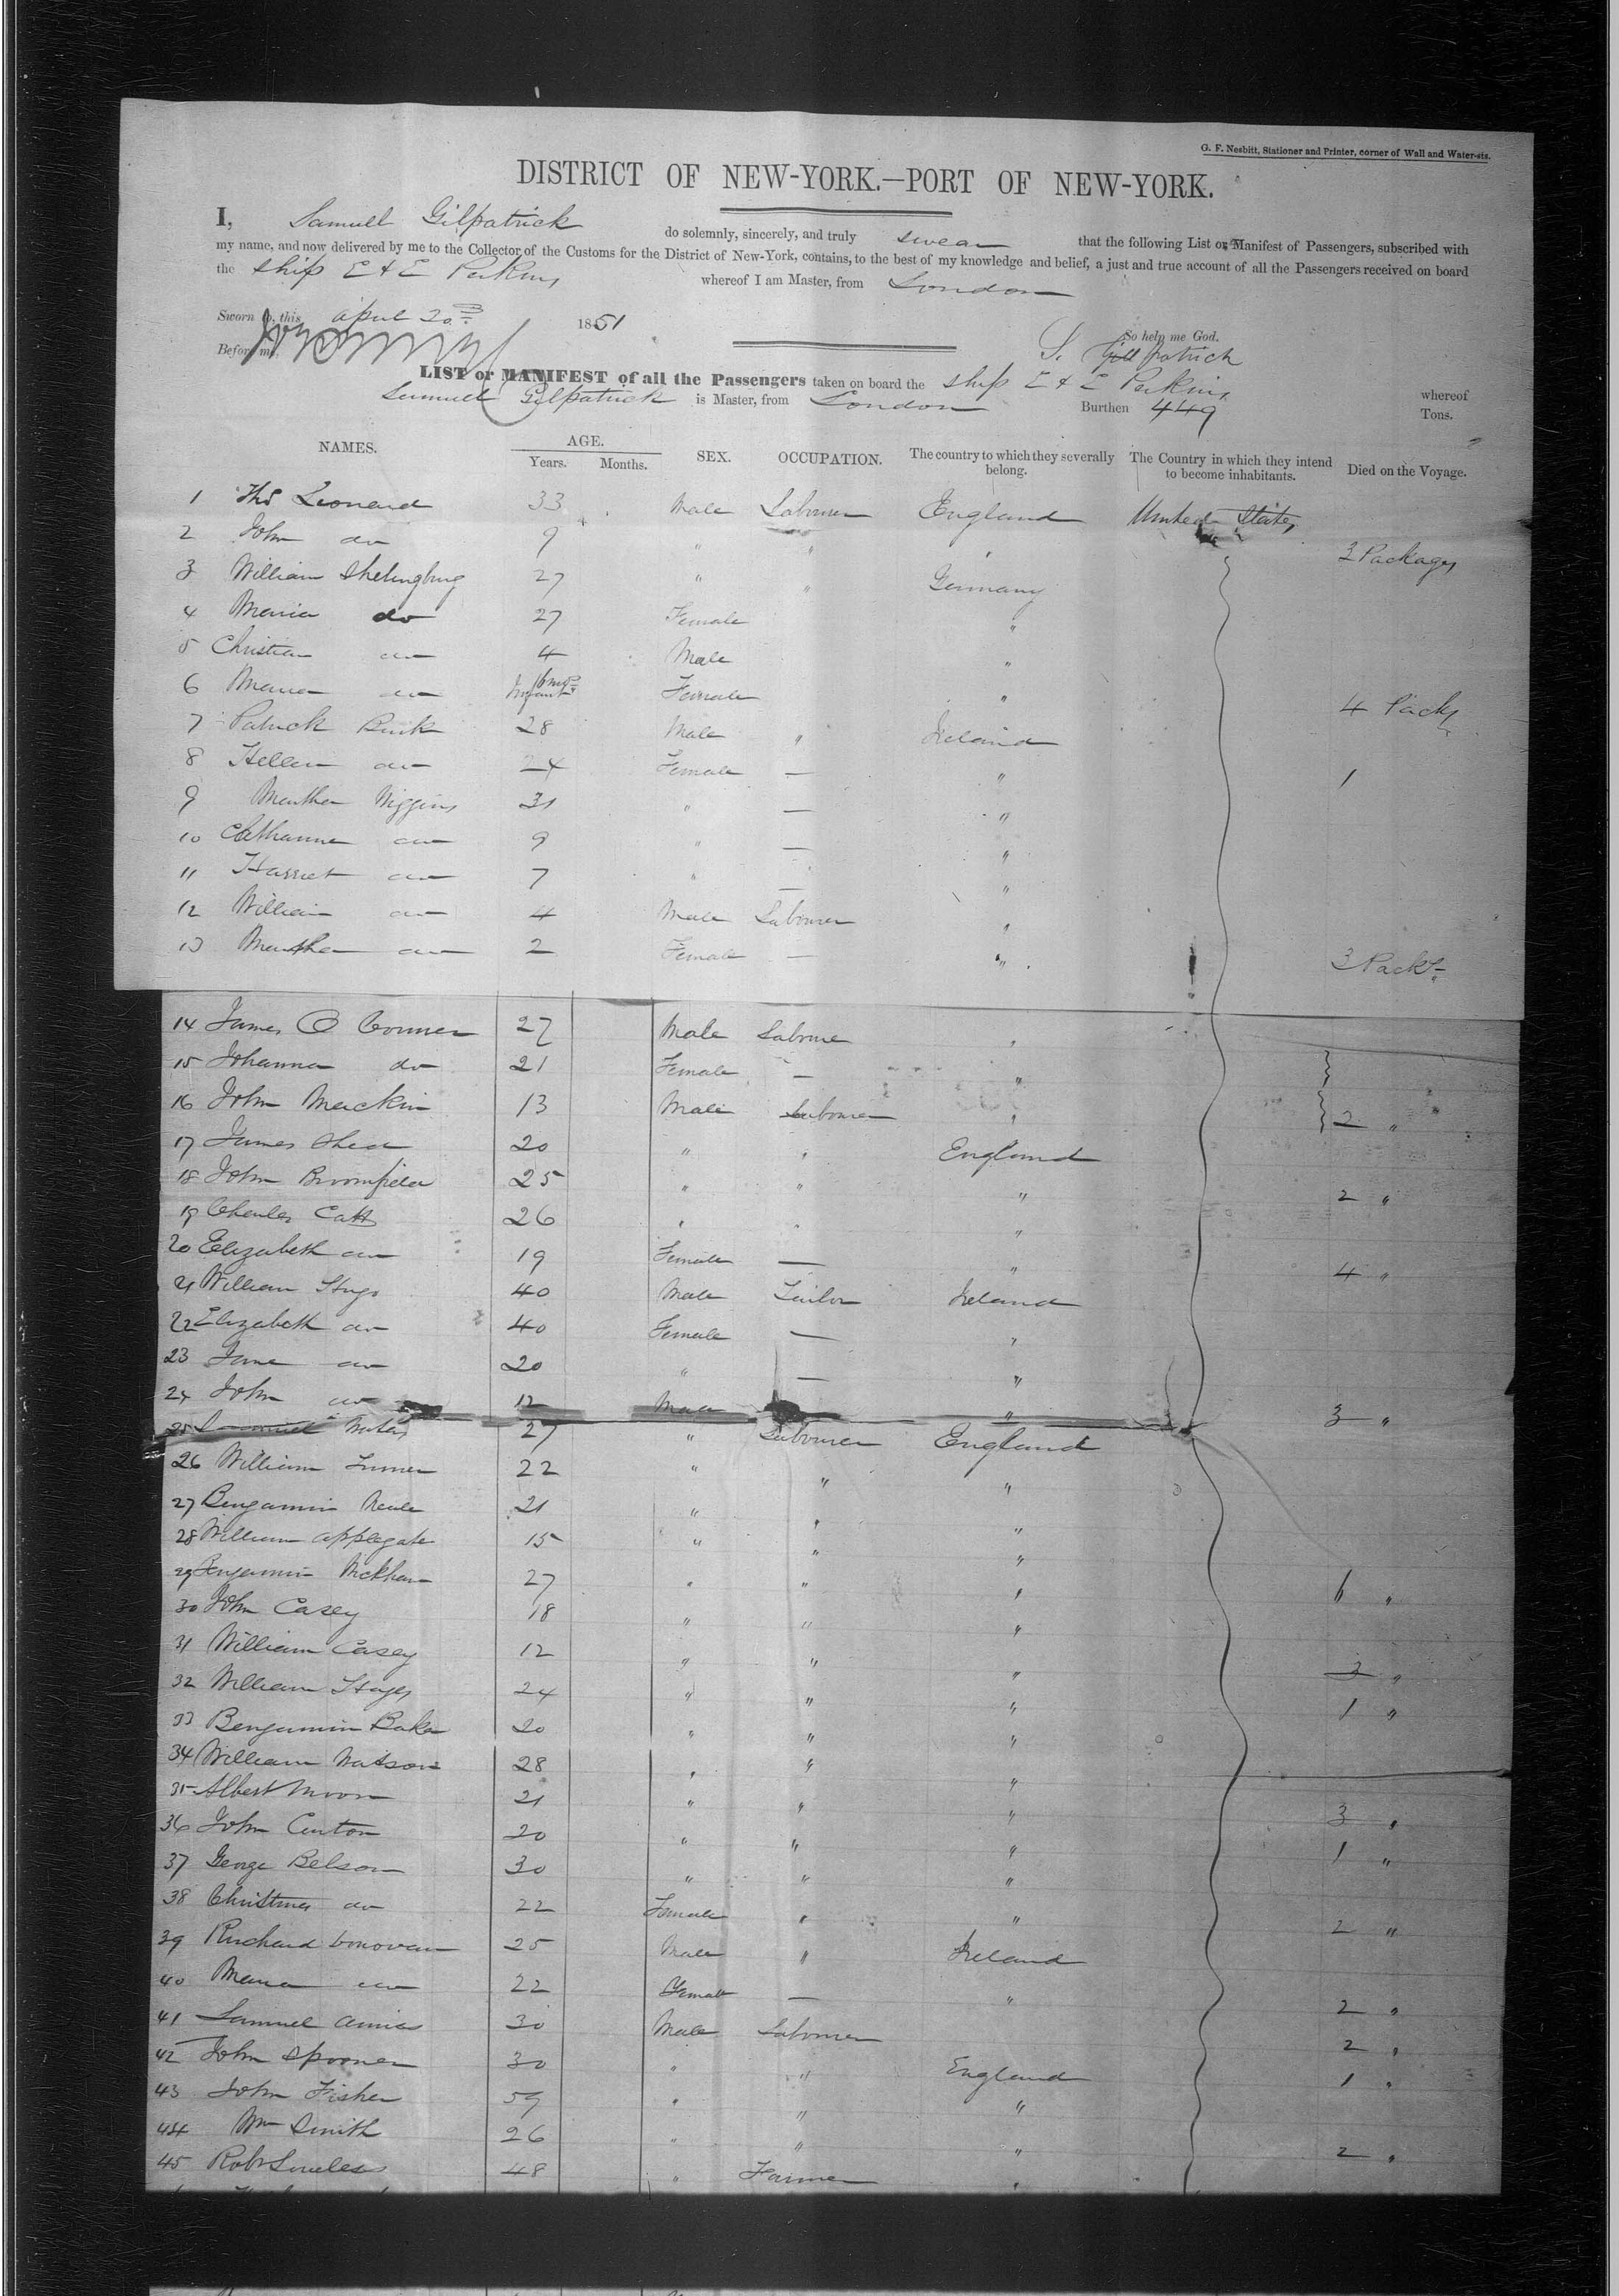 G. F. Nesbitt, Stationer and Printer, corner of Wall and Water-sts.
DISTRICT OF NEW-YORK.—PORT OF NEW-YORK.
I, Samuel Gilpatrick do solemnly, sincerely, and truly swear that the following List or Manifest of Passengers, subscribed with
my name, and now delivered by me to the Collector of the Customs for the District of New-York, contains, to the best of my knowledge and belief, a just and true account of all the Passengers received on board
the Ship E & E Perkins whereof I am Master, from London
Sworn to, this april 20 1851
So help me God.
Before me, S. Gilpatrick
LIST or MANIFEST of all the Passengers taken on board the ship E & E Perkins whereof
Samuel Gilpatrick is Master, from London Burthen 449 Tons.
NAMES. AGE. Years. Months. SEX. OCCUPATION. The country to which they severally belong. The Country in which they intend to become inhabitants. Died on the Voyage.
1 Thos Leonard 33 Male Labourer England United States
2 John do 9 " " " 3 Packages
3 William 27 " " Germany
4 Maria do 27 Female "
5 Christian do 4 Male "
6 Maria do Infant 6 mos Female " 4 Packs
7 Patrick Burk 28 Male " Ireland
8 Hellen do 24 Female — " 1
9 Martha Higgins 31 " — "
10 Catharine do 9 " — "
11 Harriet do 7 " — "
12 William do 4 Male Labourer "
13 Martha do 2 Female — " 3 Packs
14 James O Conner 27 Male Laboure "
15 Johanna do 21 Female — "
16 John Mackin 13 Male Labourer " 2 "
17 James Shea 20 " " England
18 John Bromfield 25 " " " 2 "
19 Charles Catt 26 " " "
20 Elizabeth do 19 Female — " 4 "
21 William 40 Male Tailor Ireland
22 Elizabeth do 40 Female — "
23 Jane do 20 " — "
24 John do 12 Male " 3 "
25 27 " Labourer England
26 William Turner 22 " " "
27 Bengamin Neale 21 " " "
28 William applegate 15 " " "
29 Bengamin 27 " " " 6 "
30 John Casey 18 " " "
31 William Casey 12 " " " 2 "
32 William Hayes 24 " " " 1 "
33 Bengamin Baker 20 " " "
34 William Watson 28 " " "
35 Albert Moon 21 " " " 3 "
36 John Centon 20 " " " 1 "
37 George Belson 30 " " "
38 Christina do 22 Female " " 2 "
39 Richard Donovan 25 Male " Ireland
40 Maria do 22 Female — " 2 "
41 Samuel 30 Male Labourer 2 "
42 John Spooner 30 " " England 1 "
43 John Fisher 59 " " "
44 Wm Smith 26 " " " 2 "
45 Robt 48 " Farmer "